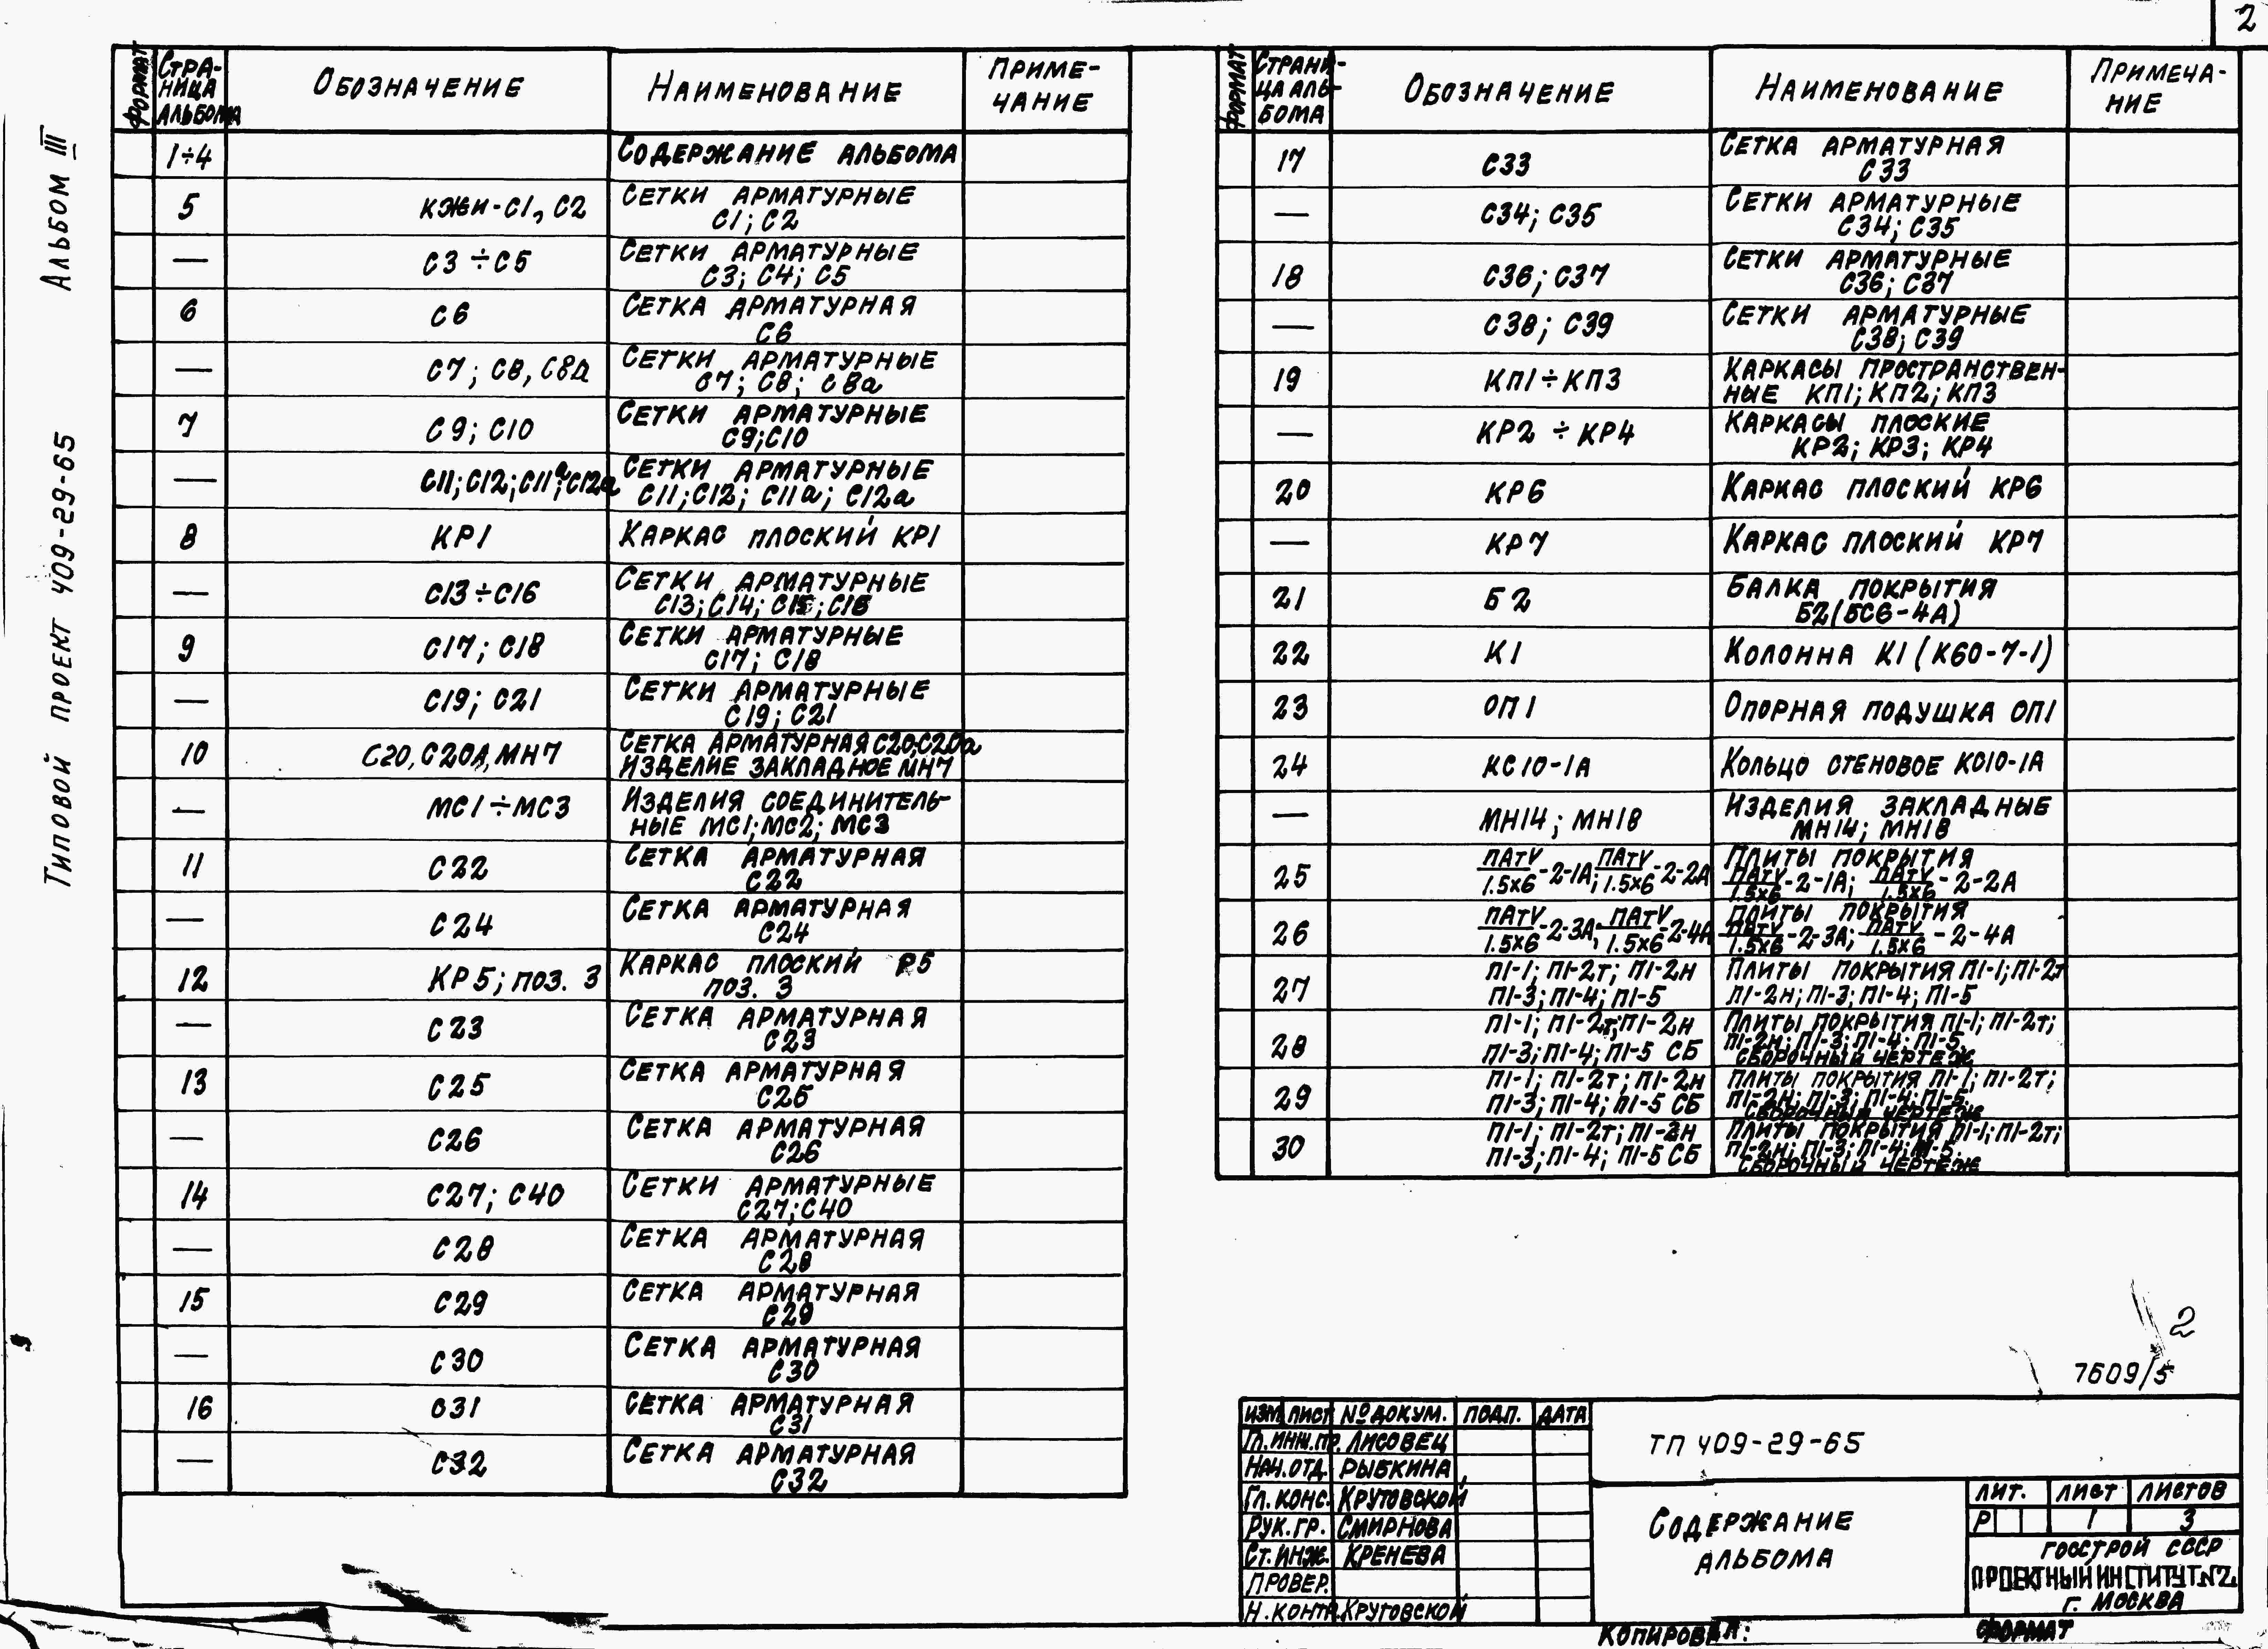 2
Типовой проект 409-29-65 Альбом III
Формат | Страница альбома | Обозначение | Наименование | Примечание
1÷4 | Содержание альбома
5 | КЖИ-С1, С2 | Сетки арматурные С1; С2
— | С3÷С5 | Сетки арматурные С3; С4; С5
6 | С6 | Сетка арматурная С6
— | С7; С8, С8а | Сетки арматурные С7; С8; С8а
7 | С9; С10 | Сетки арматурные С9; С10
— | С11; С12; С11а; С12а | Сетки арматурные С11; С12; С11а; С12а
8 | КР1 | Каркас плоский КР1
— | С13÷С16 | Сетки арматурные С13; С14; С15; С16
9 | С17; С18 | Сетки арматурные С17; С18
— | С19; С21 | Сетки арматурные С19; С21
10 | С20, С20А, МН7 | Сетка арматурная С20, С20а изделие закладное МН7
— | МС1÷МС3 | Изделия соединительные МС1; МС2; МС3
11 | С22 | Сетка арматурная С22
— | С24 | Сетка арматурная С24
12 | КР5; поз. 3 | Каркас плоский Р5 поз. 3
— | С23 | Сетка арматурная С23
13 | С25 | Сетка арматурная С25
— | С26 | Сетка арматурная С26
14 | С27; С40 | Сетки арматурные С27; С40
— | С28 | Сетка арматурная С28
15 | С29 | Сетка арматурная С29
— | С30 | Сетка арматурная С30
16 | С31 | Сетка арматурная С31
— | С32 | Сетка арматурная С32
Формат | Страница альбома | Обозначение | Наименование | Примечание
17 | С33 | Сетка арматурная С33
— | С34; С35 | Сетки арматурные С34; С35
18 | С36; С37 | Сетки арматурные С36; С37
— | С38; С39 | Сетки арматурные С38; С39
19 | КП1÷КП3 | Каркасы пространственные КП1; КП2; КП3
— | КР2÷КР4 | Каркасы плоские КР2; КР3; КР4
20 | КР6 | Каркас плоский КР6
— | КР7 | Каркас плоский КР7
21 | Б2 | Балка покрытия Б2 (БС6-4А)
22 | К1 | Колонна К1 (К60-7-1)
23 | ОП1 | Опорная подушка ОП1
24 | КС10-1А | Кольцо стеновое КС10-1А
— | МН14; МН18 | Изделия закладные МН14; МН18
25 | ПАтV/1.5х6-2-1А; ПАтV/1.5х6-2-2А | Плиты покрытия ПАтV/1.5х6-2-1А; ПАтV/1.5х6-2-2А
26 | ПАтV/1.5х6-2-3А; ПАтV/1.5х6-2-4А | Плиты покрытия ПАтV/1.5х6-2-3А; ПАтV/1.5х6-2-4А
27 | П1-1; П1-2т; П1-2н П1-3; П1-4; П1-5 | Плиты покрытия П1-1; П1-2т П1-2н; П1-3; П1-4; П1-5
28 | П1-1; П1-2т; П1-2н П1-3; П1-4; П1-5 СБ | Плиты покрытия П1-1; П1-2т; П1-2н; П1-3; П1-4; П1-5. Сборочный чертеж
29 | П1-1; П1-2т; П1-2н П1-3; П1-4; П1-5 СБ | Плиты покрытия П1-1; П1-2т; П1-2н; П1-3; П1-4; П1-5. Сборочный чертеж
30 | П1-1; П1-2т; П1-2н П1-3; П1-4; П1-5 СБ | Плиты покрытия П1-1; П1-2т; П1-2н; П1-3; П1-4; П1-5. Сборочный чертеж
2
7609/5
Изм Лист № докум. Подп. Дата
Гл.инж.пр. Лисовец
Нач.отд. Рыбкина
Гл.конс. Крутовской
Рук.гр. Смирнова
Ст.инж. Кренева
Провер.
Н.контр. Крутовской
ТП 409-29-65
Содержание
альбома
Лит. Лист Листов
Р 1 3
Госстрой СССР
Проектный институт №2
г. Москва
Копировал: Формат